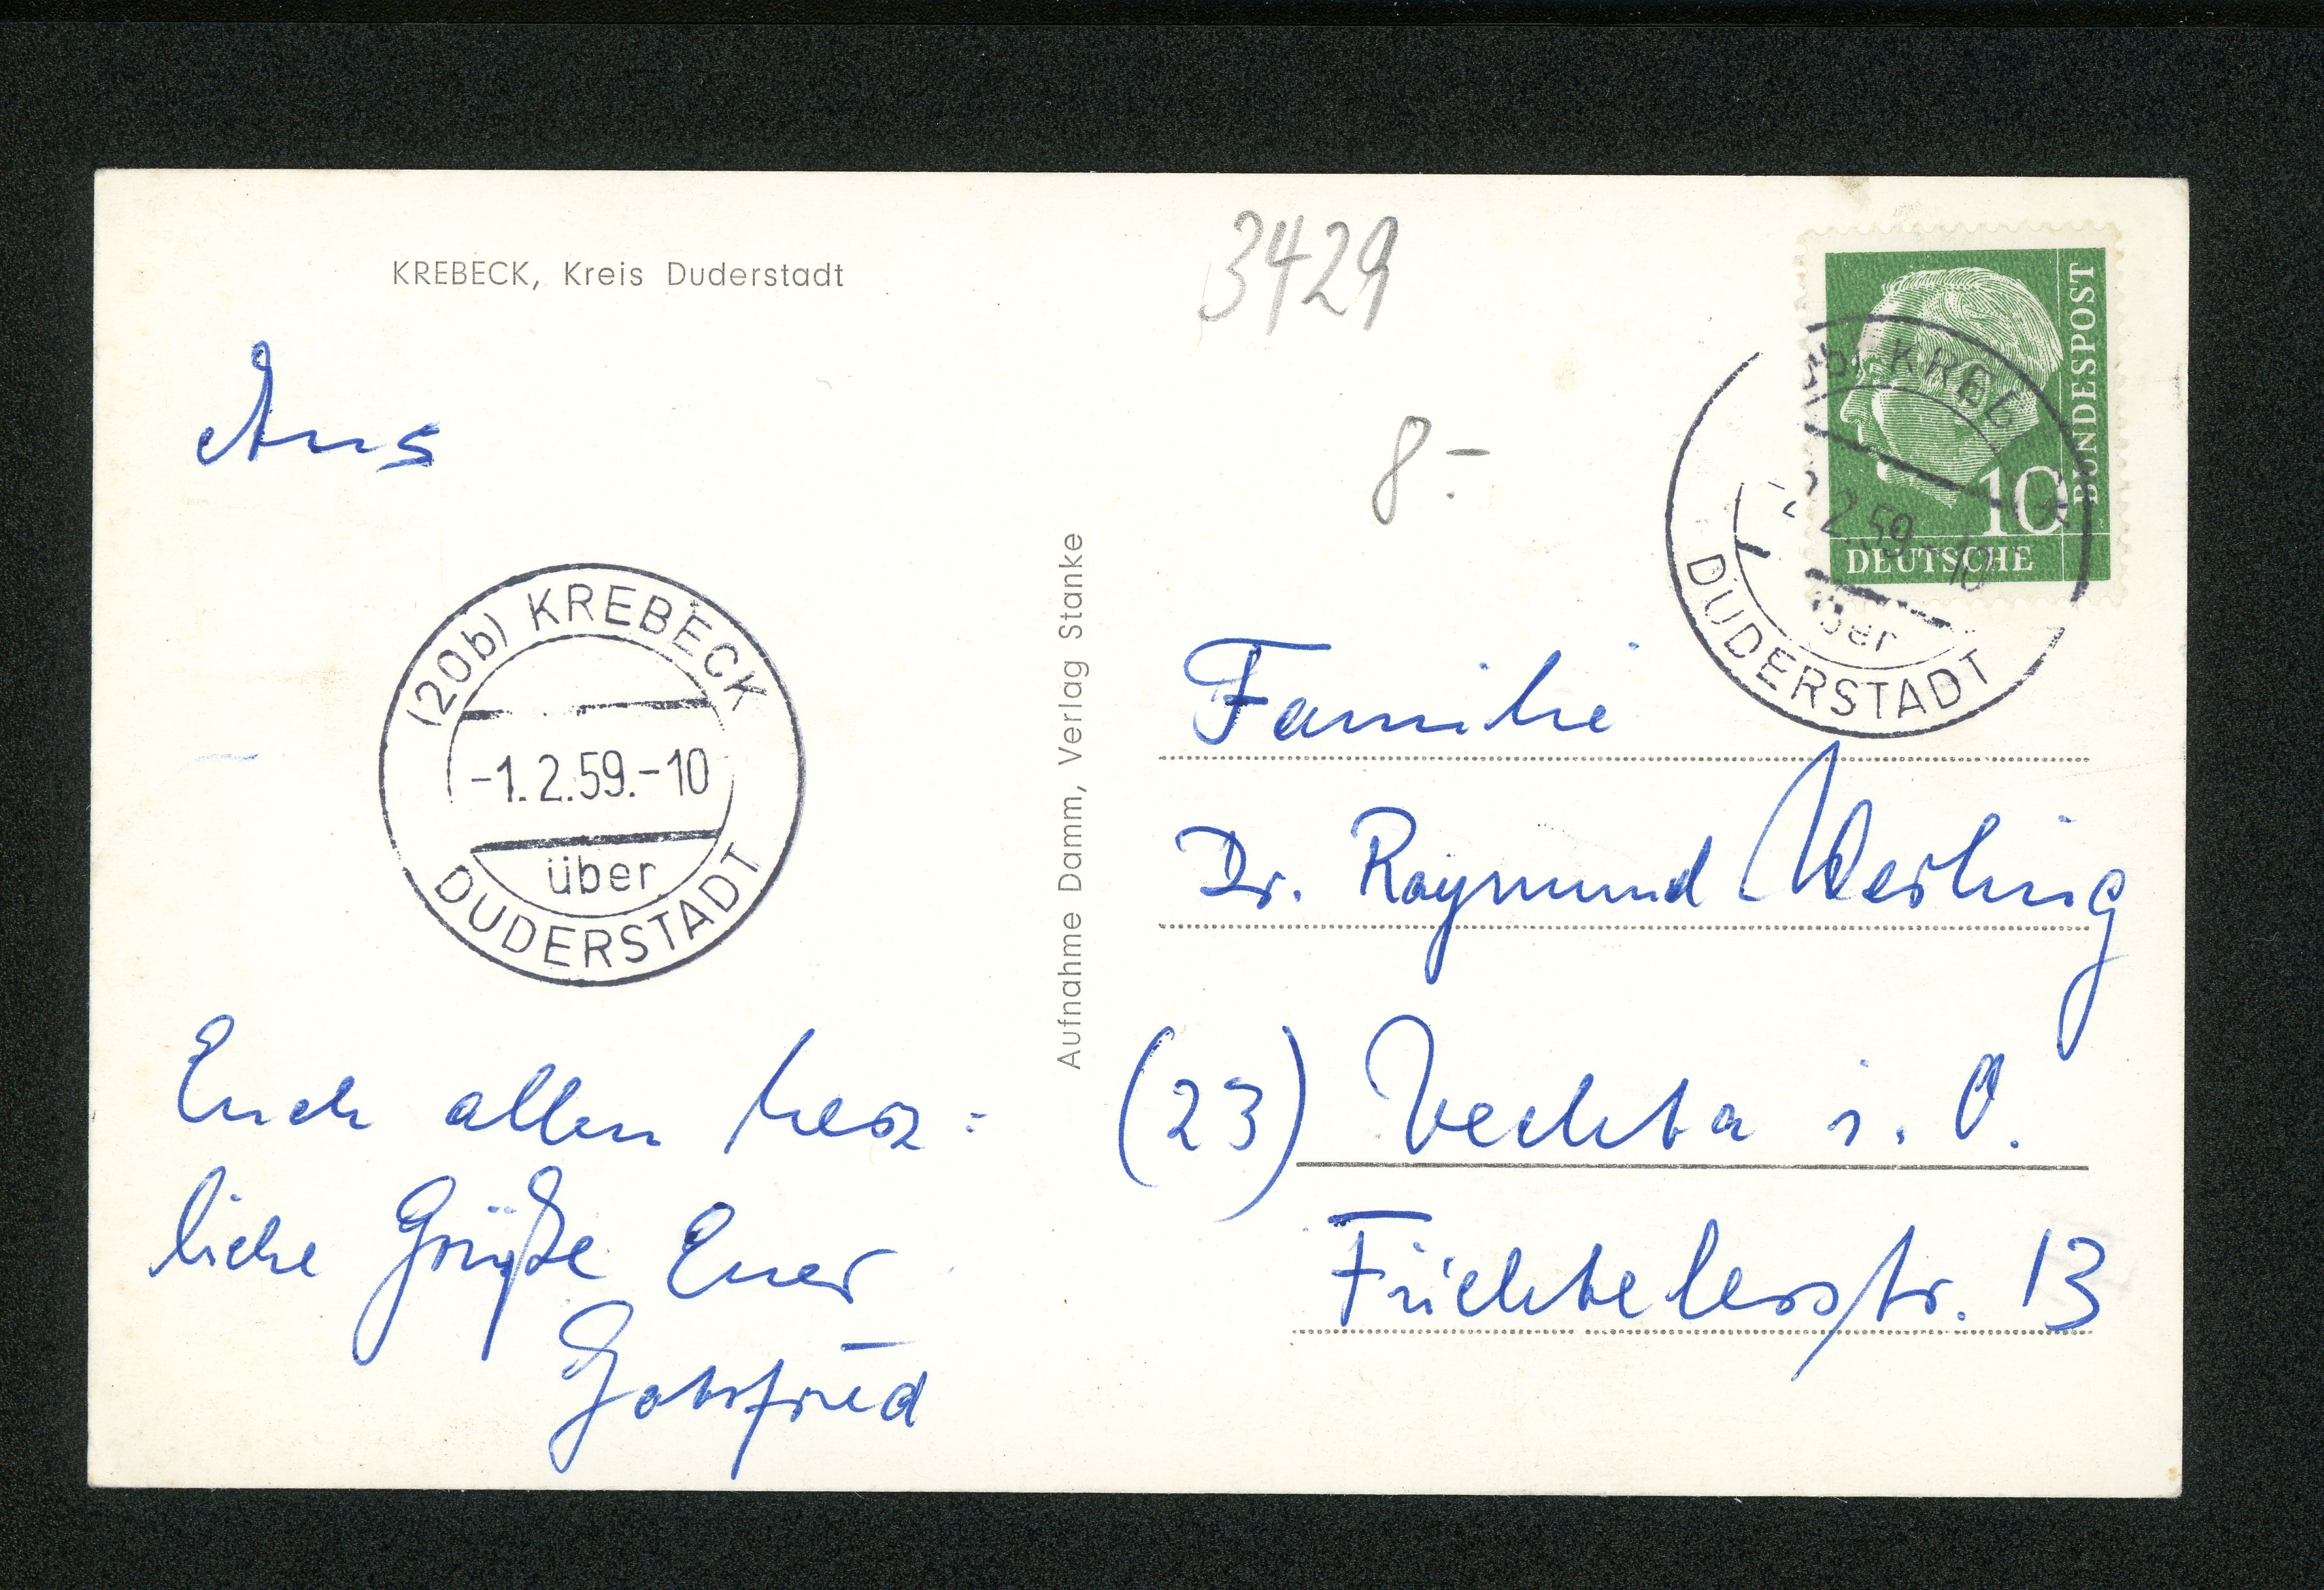 KREBECK, Kreis Duderstadt
Aus
(20b) KREBECK
-1.2.59.-10
über
DUDERSTADT
Euch allen herz=
liche Grüße Euer
Gottfried
Aufnahme Damm, Verlag Stanke
3429
8.-
BUNDESPOST
10
DEUTSCHE
2.59.-10
über
DUDERSTADT
Familie
Dr. Raymund
(23) Vechta i. O.
Füchtelerstr. 13